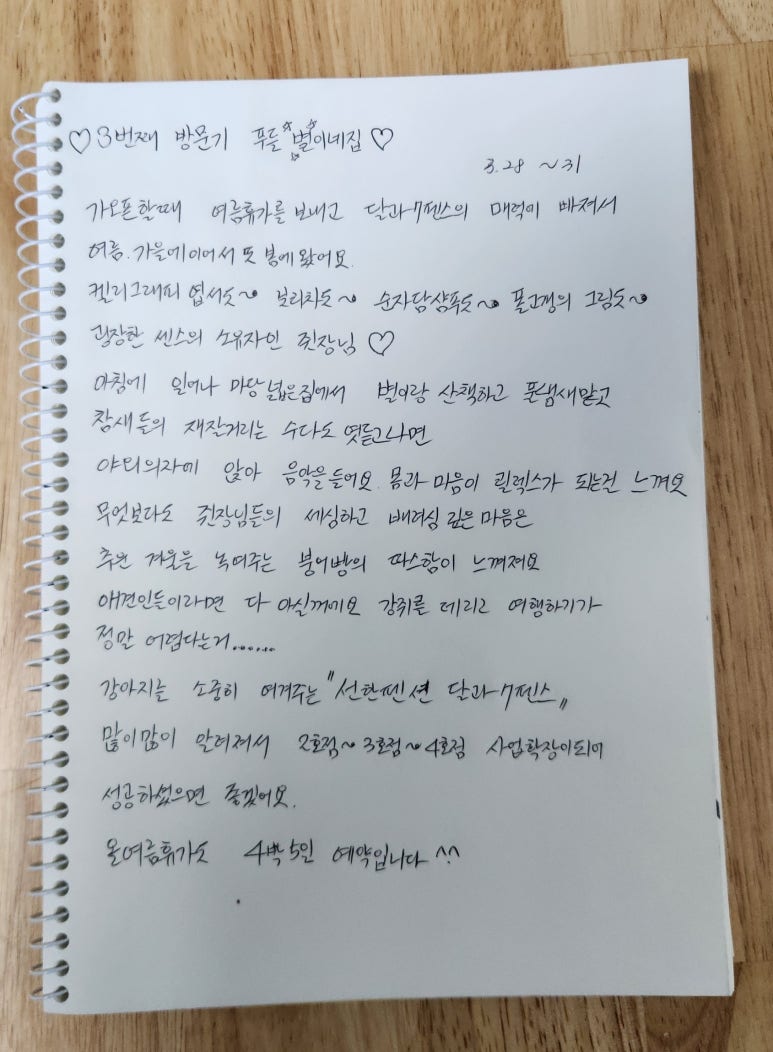 ♡ 3번째 방문기 푸들 ☆별☆이네집 ♡
3.28 ~ 31
가오픈할때 여름휴가를 보내고 달과7펜스의 매력이 빠져서
여름.가을에이어서 또 봄에 왔어요.
켈리그래피 엽서도~ 보리차도~ 순자담샴푸도~ 폴고갱의 그림도~
굉장한 센스의 소유자인 쥔장님 ♡
아침에 일어나 마당 넓은집에서 별이랑 산책하고 풀냄새맡고
참새들의 재잘거리는 수다도 엿듣고나면
야외의자에 앉아 음악을 들어요. 몸과 마음이 릴렉스가 되는걸 느껴요
무엇보다도 쥔장님들의 세심하고 배려심 깊은 마음은
추운 겨울을 녹여주는 붕어빵의 따스함이 느껴져요
애견인들이라면 다 아실꺼에요 강쥐를 데리고 여행하기가
정말 어렵다는거.......
강아지를 소중히 여겨주는 "선한펜션 달과7펜스"
많이많이 알려져서 2호점~3호점~4호점 사업확장이되어
성공하셨으면 좋겠어요.
올여름휴가도 4박5일 예약입니다 ^^